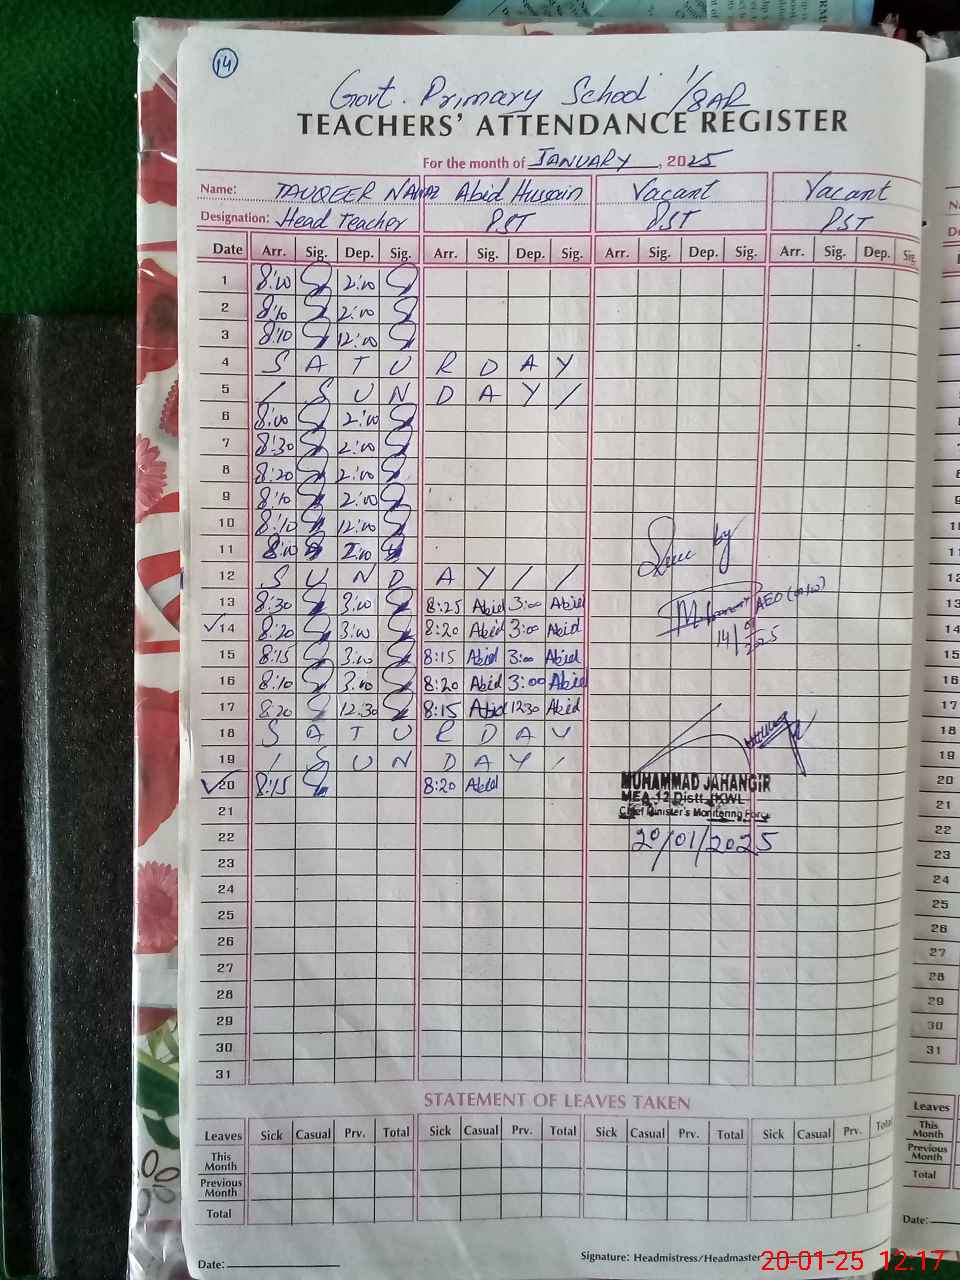 14
Govt. Primary School 1/8AR
TEACHERS' ATTENDANCE REGISTER
For the month of JANUARY, 2025
Name: TAUQEER NAWAZ Abid Hussain Vacant Vacant
Designation: Head Teacher PST PST PST
Date Arr. Sig. Dep. Sig. Arr. Sig. Dep. Sig. Arr. Sig. Dep. Sig. Arr. Sig. Dep. Sig.
1 8:00 2:00
2 8:10 2:00
3 8:10 12:00
4 S A T U R D A Y
5 / S U N D A Y /
6 8:00 2:00
7 8:30 2:00
8 8:20 2:00
9 8:10 2:00
10 8:10 12:00
11 8:00 2:00
12 S U N D A Y / /
13 8:30 3:00 8:25 Abid 3:00 Abid
14 8:20 3:00 8:20 Abid 3:00 Abid
15 8:15 3:00 8:15 Abid 3:00 Abid
16 8:10 3:00 8:20 Abid 3:00 Abid
17 8:20 12:30 8:15 Abid 12:30 Abid
18 S A T U R D A Y
19 / S U N D A Y /
20 8:15 8:20 Abid
21
22
23
24
25
26
27
28
29
30
31
by
AEO
14/01/2025
MUHAMMAD JAHANGIR
MEA 12 Distt. KWL
Chief Minister's Monitoring Force
20/01/2025
STATEMENT OF LEAVES TAKEN
Leaves Sick Casual Prv. Total Sick Casual Prv. Total Sick Casual Prv. Total Sick Casual Prv. Total
This Month
Previous Month
Total
Date:
Signature: Headmistress/Headmaster
11
12
13
14
15
16
17
18
19
20
21
22
23
24
25
26
27
28
29
30
31
Leaves
This Month
Previous Month
Total
Date:
20-01-25 12:17